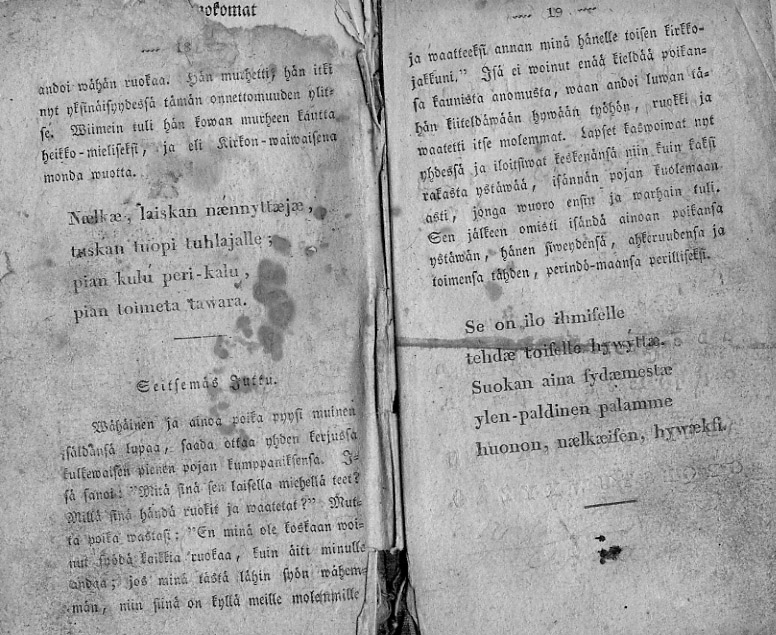 ruokomat
18
andoi wåhån ruokaa. Hån murhetti, hån itki
nyt yksinåisyydesså tåmån onnettomuuden ylit-
se. Wiimein tuli hån kowan murheen kautta
heikko-mieliseksi, ja eli Kirkon-waiwaisena
monda wuotta.
Nælkæ, laiskan nænnyttæjæ,
tuskan tuopi tuhlajalle;
pian kulu peri-kalu,
pian toimeta tawara.
Seitsemås Juttu.
Wåhåinen ja ainoa poika pyysi muinen
isåldånså lupaa, saada ottaa yhden kerjusså
kulkewaisen pienen pojan kumppaniksensa. I-
så sanoi: "Mitå sinå sen laisella miehellå teet?
Millå sinå håndå ruokit ja waatetat?" Mut-
ta poika wastasi: "En minå ole koskaan woi-
nut syödå kaikkia ruokaa, kuin åiti minulle
andaa; jos minå tåstå låhin syön wåhem-
mån, niin siinå on kyllå meille molemmille
19
ja waatteeksi annan minå hånelle toisen kirkko-
jakkuni." Iså ei woinut enåå kieldåå poikan-
sa kaunista anomusta, waan andoi luwan tå-
hån kiiteldåwåån hywåån työhön, ruokki ja
waatetti itse molemmat. Lapset kaswoiwat nyt
yhdesså ja iloitsiwat keskenånså niin kuin kaksi
rakasta yståwåå, isånnån pojan kuolemaan
asti, jonga wuoro ensin ja warhain tuli.
Sen jålkeen omisti isåndå ainoan poikansa
yståwån, hånen siweydenså, ahkeruudensa ja
toimensa tåhden, perindö-maansa perilliseksi.
Se on ilo ihmiselle
tehdæ toiselle hywyttæ.
Suokan aina sydæmestæ
ylen-paldinen palamme
huonon, nælkæisen, hywæksi.